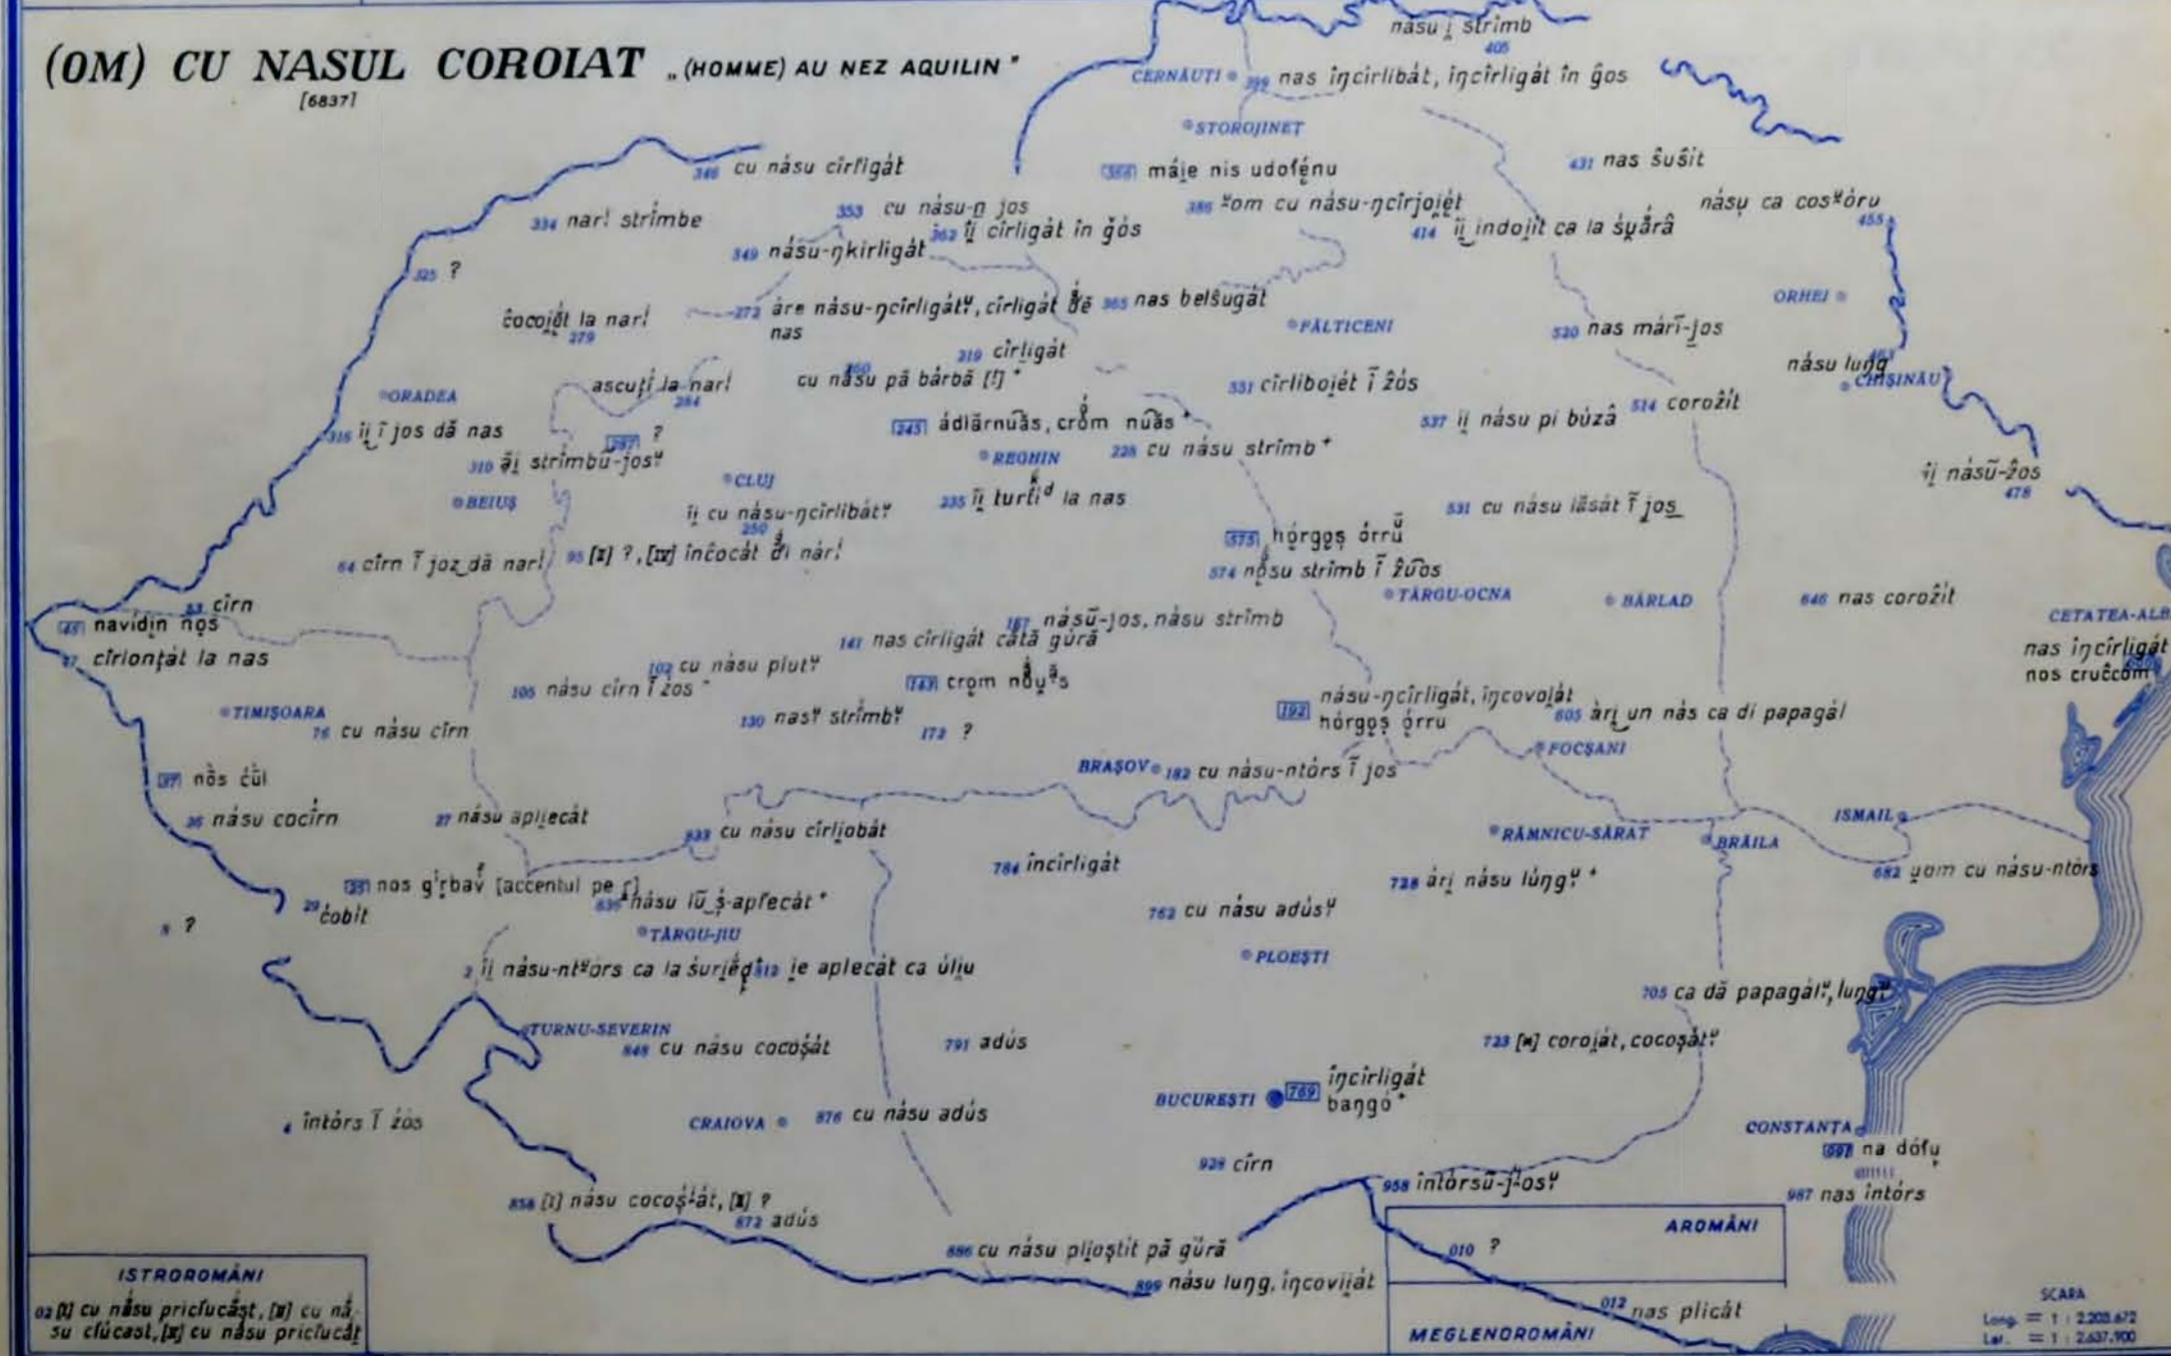 (OM) CU NASUL COROIAT „(HOMME) AU NEZ AQUILIN"
[6837]
násu i̯ strîmb
405
CERNĂUȚI 399 nas îŋcîrlibát, îŋcîrligát în ĝos
STOROJINEȚ
346 cu násu cîrľigát
366 máie nis udoľénu
431 nas ŝuŝít
334 narĭ strîmbe
353 cu násu-n jos
386 ᵘom cu násu-ŋcîrjoi̯ét
násu̧ ca cosᵘóru
455
362 îi̯ cîrligát în ĝós
414 îi̯ indoi̯ít ca la ŝu̯árâ
349 násu-ŋkirligát
325 ?
272 áre násu-ŋcîrligátᵘ, cîrligát dĕ
nas
365 nas belŝugát
ORHEI
ĉocoi̯ắt la narĭ
279
FĂLTICENI
520 nas márĭ-jos
319 cîrligát
násu lung
463
CHIȘINĂU
260
cu násu pă bárbă [!] +
ascuțí la narĭ
284
531 cîrliboi̯ét ĩ ẑós
ORADEA
514 coroẑít
245 ádlărnuăs, crom nuăs +
537 îi̯ násu pi búzâ
316 îi̯ ĩ jos dă nas
287 ?
228 cu násu strîmb +
310 ăi̯ strîmbũ-josᵘ
REGHIN
îi̯ násũ-ẑos
478
CLUJ
BEIUȘ
235 îi̯ turtíᵈ la nas
îi̯ cu násu-ŋcîrlibátᵘ
250
531 cu násu lăsát ĩ jos
575 hórgo̧ș órrũ
64 cîrn ĩ joz dă narĭ
95 [I] ?, [IV] înĉocát di nárĭ
574 nósu strîmb ĩ ẑuos
TÂRGU-OCNA
BÂRLAD
646 nas coroẑít
53 cîrn
CETATEA-ALB
45 navídin ño̧s
187 násũ-jos, násu strîmb
141 nas cîrligát cătă gúră
nas îŋcîrligát
nos cruĉcom
47 cîrlonțát la nas
102 cu násu plutᵘ
105 násu cîrn ĩ ẑos
143 crom nouᵃs
192 násu-ŋcîrligát, îŋcovoi̯át
hórgo̧ș órru
TIMIȘOARA
130 nasᵘ strîmbᵘ
605 ári̯ un nás ca di papagál
76 cu násu cîrn
172 ?
FOCȘANI
37 nos ĉul
BRAȘOV 182 cu násu-ntórs ĩ jos
36 násu cocîrn
27 násu apli̯ecát
833 cu násu cîrli̯obát
ISMAIL
RÂMNICU-SĂRAT
BRĂILA
784 încîrligát
682 u̯om cu násu-ntórs
25 nos g'r̥bav [accentul pe r̥]
728 ári̯ násu lúŋgᵘ +
836 násu lũ ș-apľecát +
29 ĉobít
8 ?
762 cu násu adúsᵘ
TÂRGU-JIU
PLOEȘTI
2 îi̯ násu-ntᵘórs ca la ŝuri̯éc̦
812 i̯e aplecát ca úli̯u
705 ca dă papagálᵘ, luŋgᵘ
TURNU-SEVERIN
848 cu násu cocoșát
791 adús
723 [II] coroi̯át, cocoșátᵘ
BUCUREȘTI 769 îŋcîrligát
baŋgó +
4 întórs ĩ ẑos
CRAIOVA 876 cu násu adús
CONSTANȚA
007 na dófu̧
928 cîrn
958 întórsũ-josᵘ
987 nas întórs
858 [I] násu cocoșát, [II] ?
872 adús
AROMÂNI
010 ?
886 cu násu pli̯oștít pă gúră
899 násu luŋg, îŋcovii̯át
ISTROROMÂNI
02 [I] cu nåsu pricľucåst, [II] cu nå-
su cľúcast, [III] cu nåsu pricľucåt
012 nas plicát
MEGLENOROMÂNI
SCARA
Long. = 1 : 2.205.672
Lat. = 1 : 2.637.900